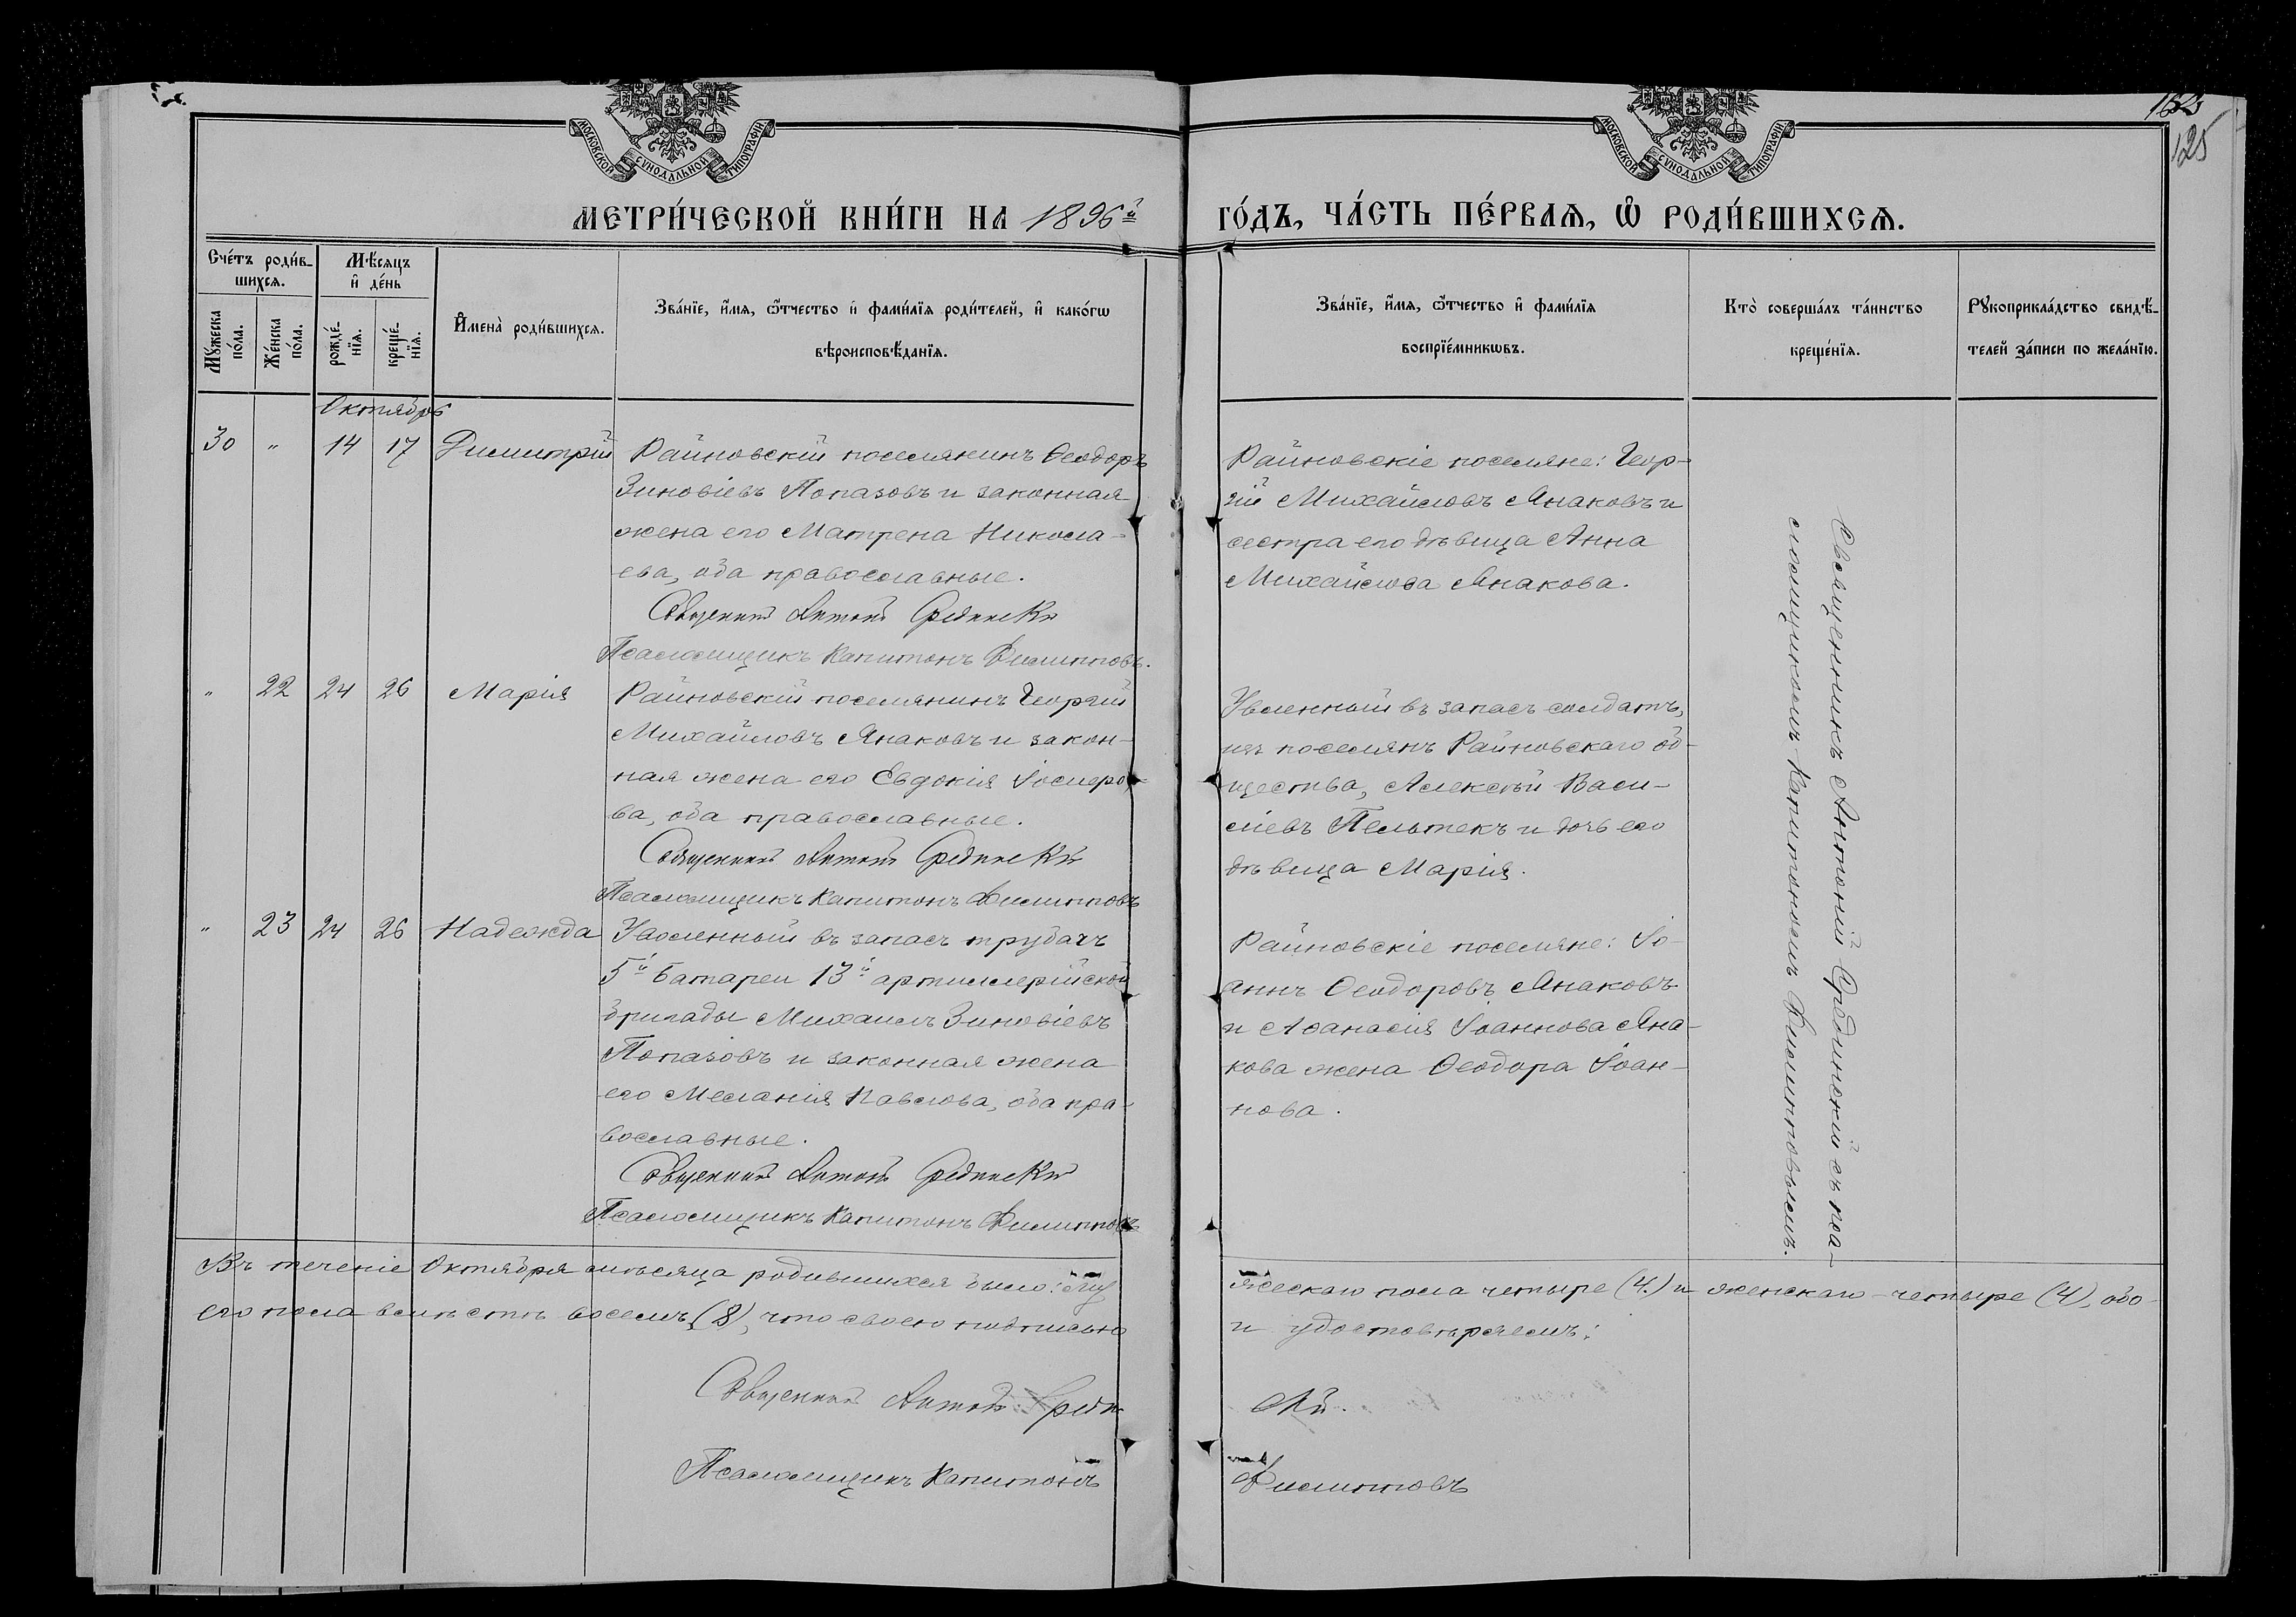 МОСКОВСКОЙ СѴНОДАЛЬНОЙ ТИПОГРАФІИ
МОСКОВСКОЙ СѴНОДАЛЬНОЙ ТИПОГРАФІИ
125
МЕТРИ́ЧЕСКОЙ КНИ́ГИ НА 1896й
ГО́ДЪ, ЧА́СТЬ ПЕ́РВАЯ, Ѽ РОДИ́ВШИХСЯ.
Сче́тъ роди́в-
шихся.
Мѣ́сяцъ
и҆ де́нь
Мꙋ́жеска по́ла.
Же́нска по́ла.
рожде́-нїѧ.
креще́-нїѧ.
И҆мена̀ роди́вшихся.
Зва́нїе, и҆́мя, ѻ҆́тчество и҆ фами́лїя роди́телей, и҆ како́гѡ
вѣроисповѣ́данїя.
Зва́нїе, и҆́мя, ѻ҆́тчество и҆ фами́лїя
воспрїе́мникѡвъ.
Кто̀ соверша́лъ та́инство
креще́нїя.
Рꙋкоприкла́дство свидѣ́-
телей за́писи по жела́нїю.
Октябрь
30 " 14 17 Димитрій
Райновскій поселянинъ Ѳеодоръ
Зиновіевъ Попазовъ и законная
жена его Матрена Никола-
ева, оба православные.
Священникъ Антоній Срединскій
Псаломщикъ Капитонъ Филипповъ.
Райновскіе поселяне: Геор-
гій Михайловъ Янаковъ и
сестра его дѣвица Анна
Михайлова Янакова.
" 22 24 26 Марія
Райновскій поселянинъ Георгій
Михайловъ Янаковъ и закон-
ная жена его Евдокія
ва, оба православные.
Священникъ Антоній Срединскій
Псаломщикъ Капитонъ Филипповъ
Уволенный въ запасъ солдатъ,
изъ поселянъ Райновскаго об-
щества, Алексѣй Васи-
ліевъ Пельтекъ и дочь его
дѣвица Марія.
" 23 24 26 Надежда
Уволенный въ запасъ трубачъ
5й батареи 13й артиллерійской
бригады Михаилъ Зиновіевъ
Попазовъ и законная жена
его Меланія Павлова, оба пра-
вославные.
Священникъ Антоній Срединскій
Псаломщикъ Капитонъ Филипповъ
Райновскіе поселяне: Іо-
аннъ Ѳеодоровъ Янаковъ
и Аѳанасія Іоаннова Яна-
кова жена Ѳеодора Іоан-
нова.
Священникъ Антоній Срединскій съ пса-
ломщикомъ Капитономъ Филипповымъ.
Въ теченіе Октября мѣсяца родившихся было: му
жескаго пола четыре (4.) и женскаго - четыре (4), обо-
его пола вмѣстѣ восемь (8), что своею подписью
и удостовѣряемъ:
Священникъ Антоній Средин
скій.
Псаломщикъ Капитонъ
Филипповъ